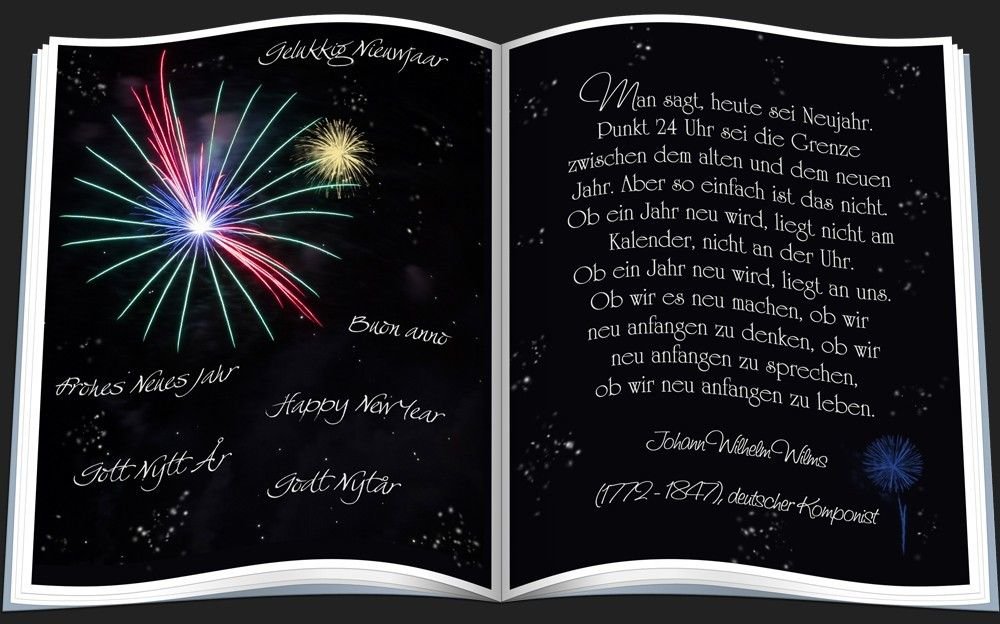 Gelukkig Nieuwjaar
Buon anno
Frohes Neues Jahr
Happy New Year
Gott Nytt År
Godt Nytår
Man sagt, heute sei Neujahr.
Punkt 24 Uhr sei die Grenze
zwischen dem alten und dem neuen
Jahr. Aber so einfach ist das nicht.
Ob ein Jahr neu wird, liegt nicht am
Kalender, nicht an der Uhr.
Ob ein Jahr neu wird, liegt an uns.
Ob wir es neu machen, ob wir
neu anfangen zu denken, ob wir
neu anfangen zu sprechen,
ob wir neu anfangen zu leben.
Johann Wilhelm Wilms
(1772 - 1847), deutscher Komponist